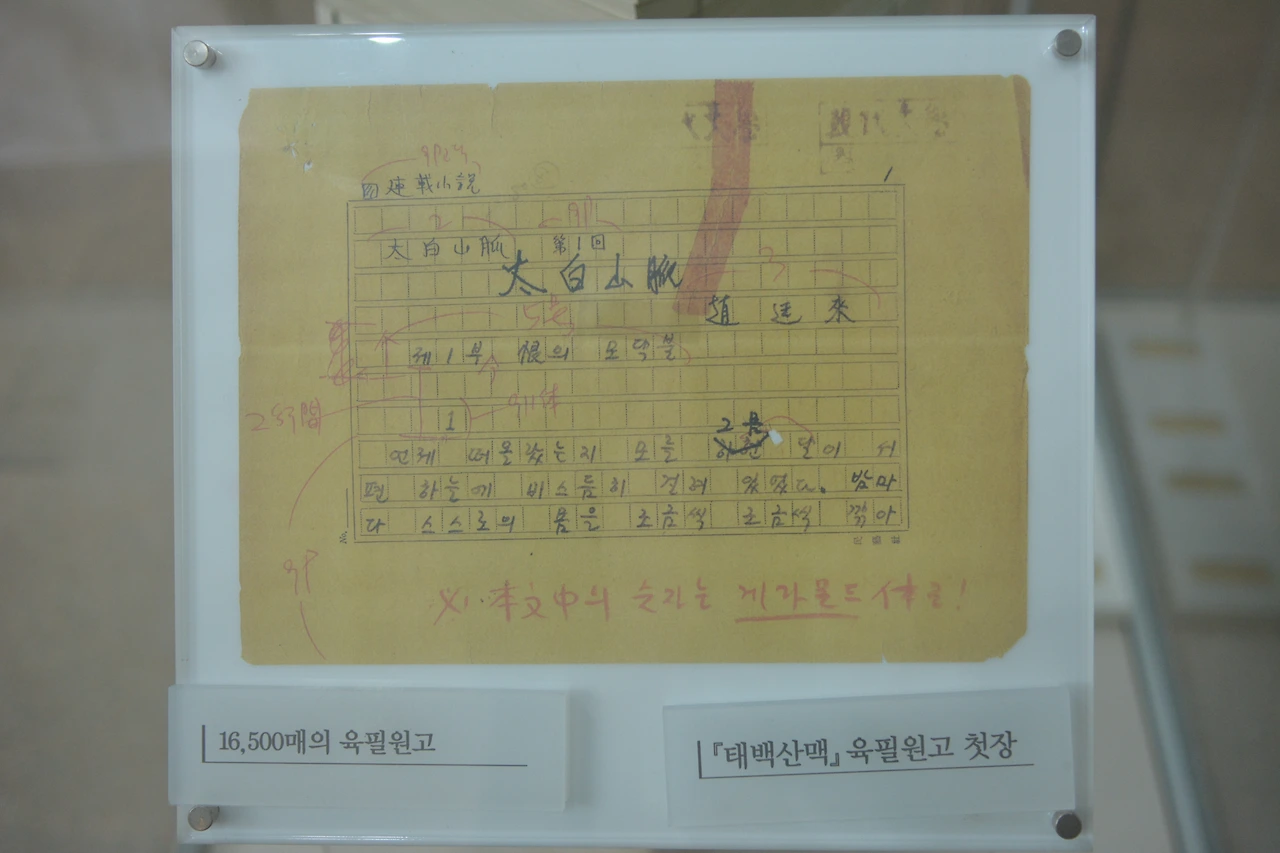 連載小說
1
太白山脈 第1回
太白山脈
趙廷來
제1부 恨의 모닥불
2行間
1
언제 떠올랐는지 모를 그믐달이 서
편 하늘에 비스듬히 걸려 있었다. 밤마
다 스스로의 몸을 조금씩 조금씩 깎아
本文中의 숫자는 게라몬드体로!
16,500매의 육필원고
『태백산맥』 육필원고 첫장